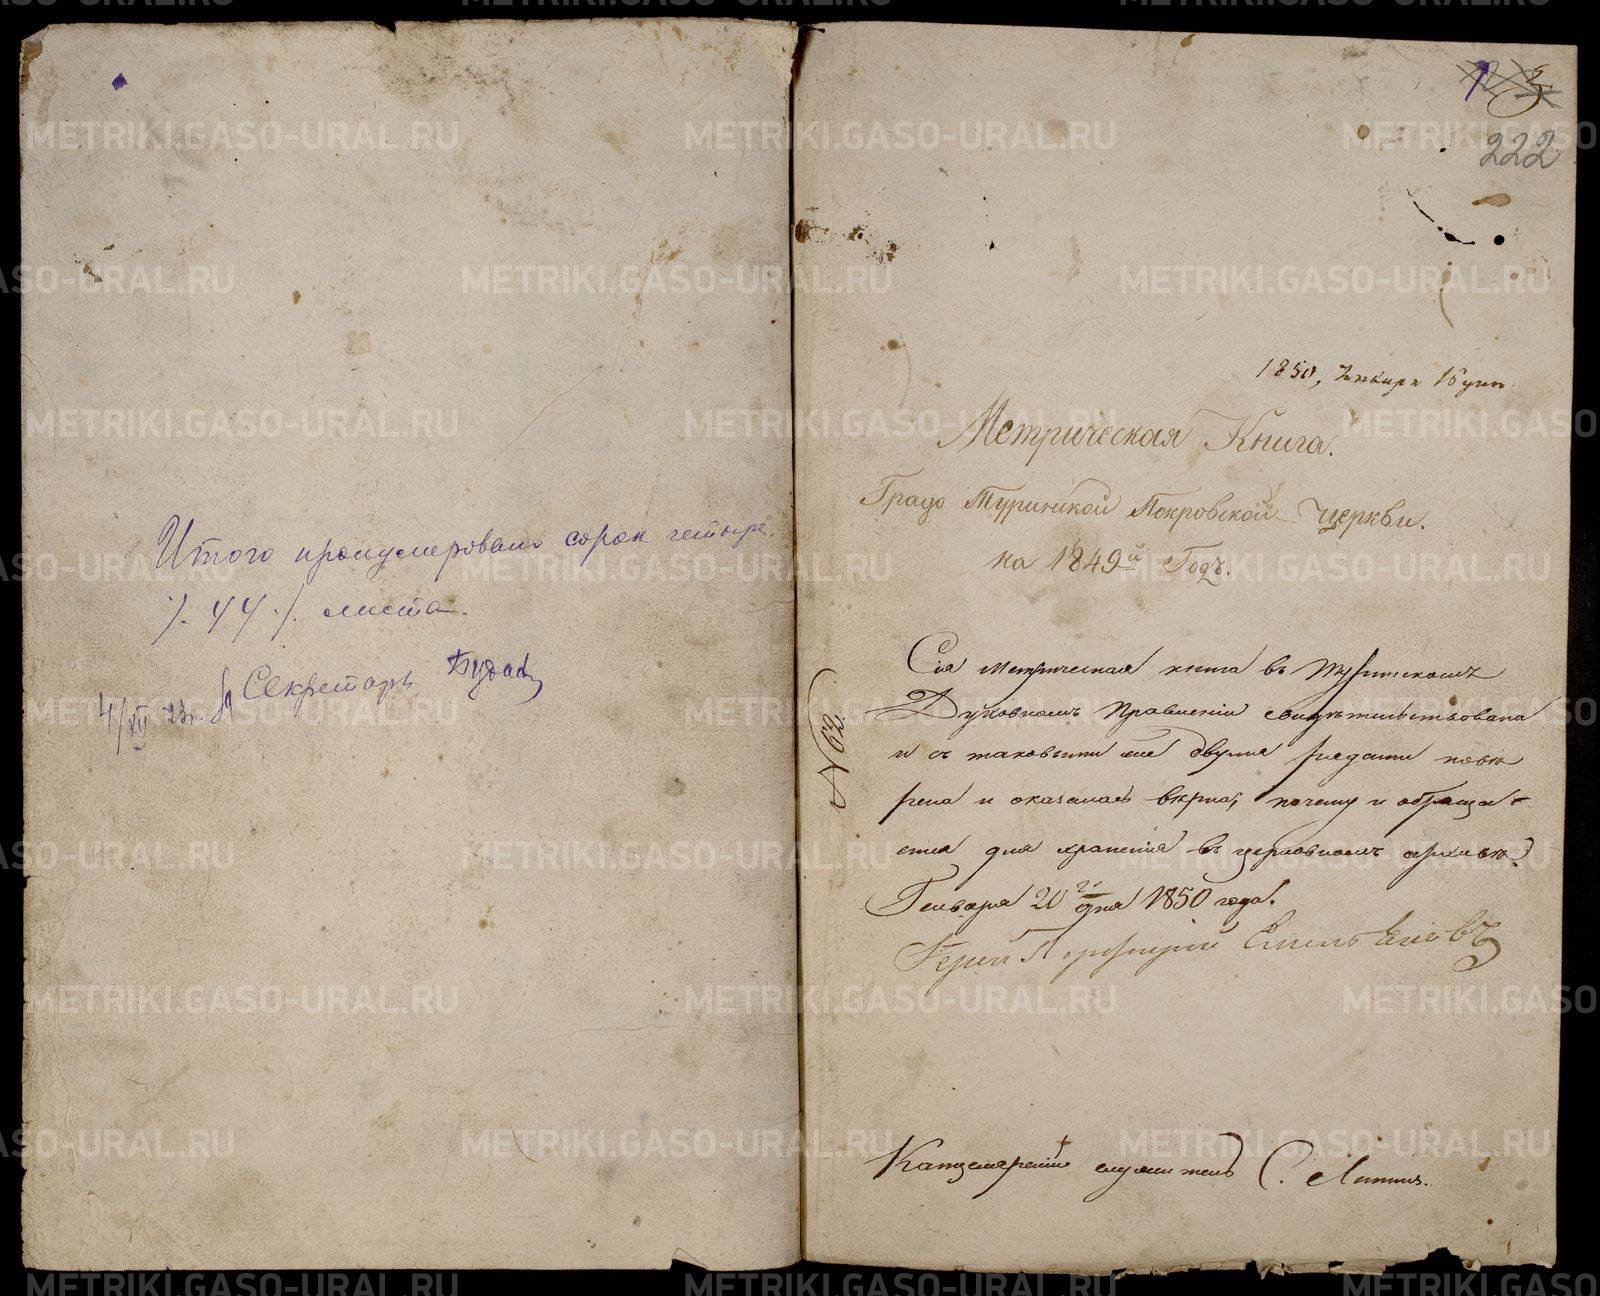 Итого пронумеровано сорок четыре
/. 44 /. листа.
Секретарь
4/VII 23 г.
222
1850, Января 15 дня
Метрическая Книга.
Градо Туринской Покровской Церкви.
на 1849й Годъ.
№ 62.
Сія метрическая книга въ Туринскомъ
Духовномъ Правленіи свидѣтельствована
и съ таковыми же двумя рядами повѣ
рена и оказалась вѣрна, почему и обраща-
ется для храненія въ церковномъ архивѣ.
Генваря 20го дня 1850 года.
Іерей Порфирій Емельяновъ
Канцелярскій служитель С.
METRIKI.GASO-URAL.RU